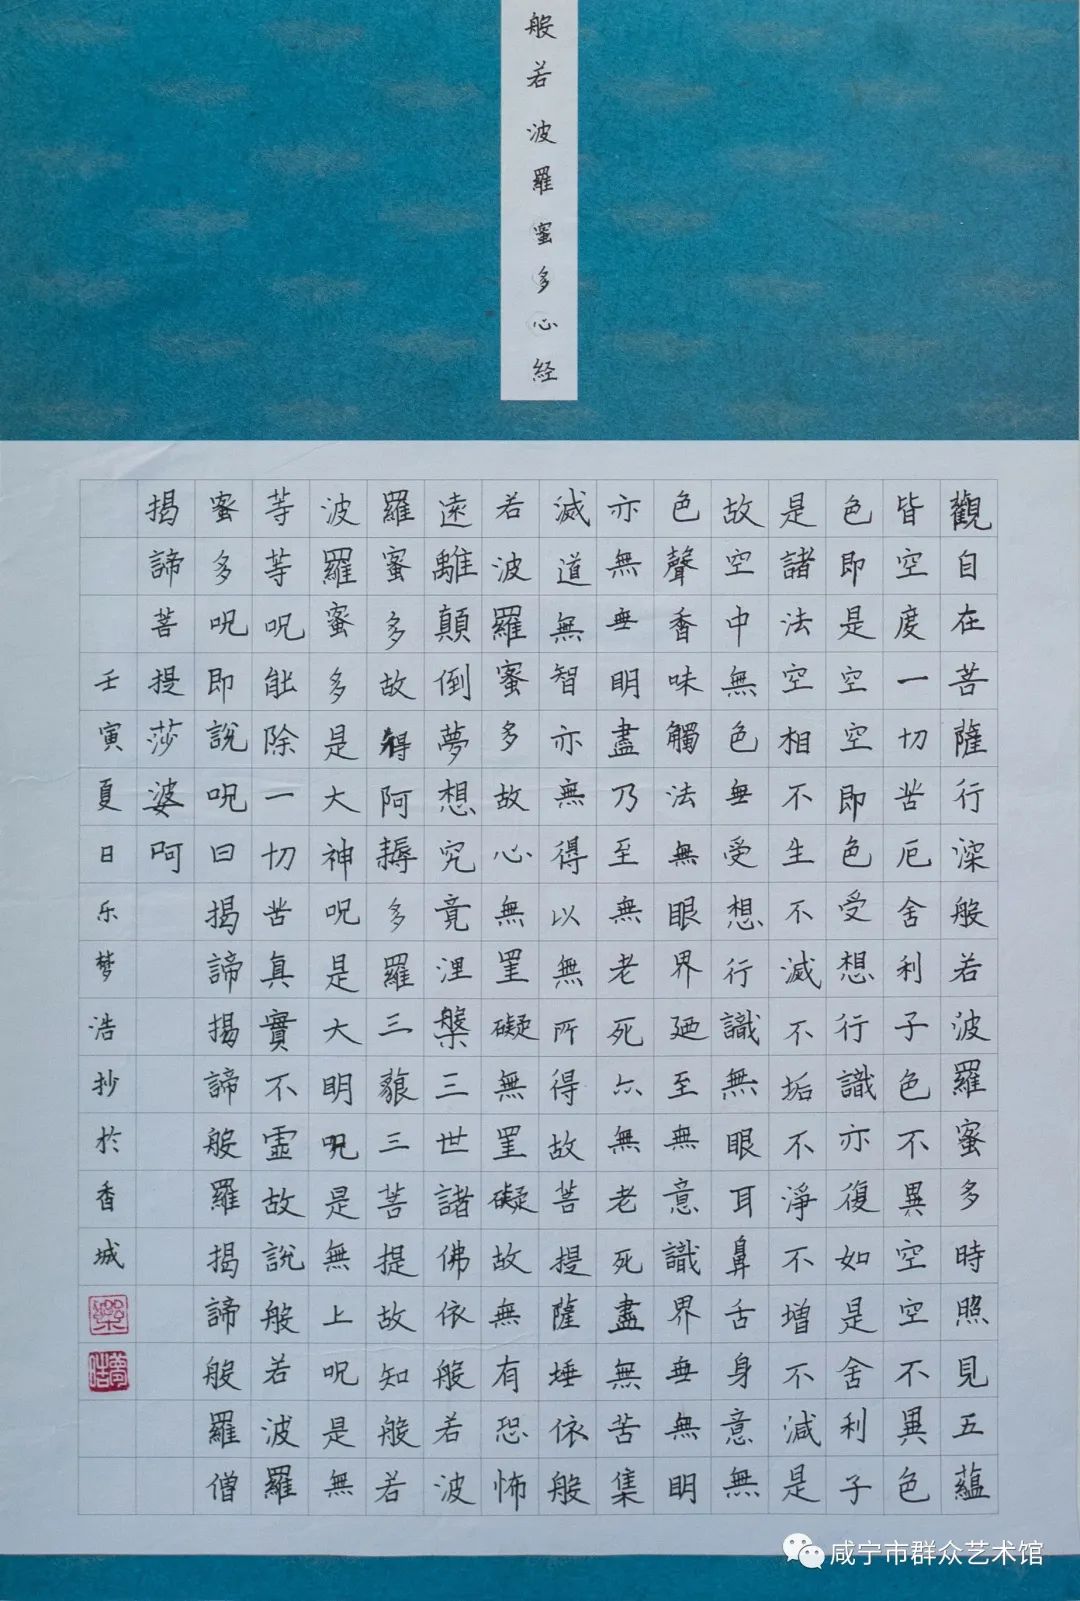 般若波羅蜜多心経
觀自在菩薩行深般若波羅蜜多時照見五蘊
皆空度一切苦厄舍利子色不異空空不異色
色即是空空即色受想行識亦復如是舍利子
是諸法空相不生不滅不垢不淨不增不減是
故空中無色無受想行識無眼耳鼻舌身意無
色聲香味觸法無眼界廼至無意識界無無明
亦無無明盡乃至無老死亦無老死盡無苦集
滅道無智亦無得以無所得故菩提薩埵依般
若波羅蜜多故心無罣礙無罣礙故無有恐怖
遠離顛倒夢想究竟涅槃三世諸佛依般若波
羅蜜多故得阿耨多羅三藐三菩提故知般若
波羅蜜多是大神呪是大明呪是無上呪是無
等等呪能除一切苦真實不虛故說般若波羅
蜜多呪即說呪曰揭諦揭諦般羅揭諦般羅僧
揭諦菩提莎婆呵
壬寅夏日乐梦浩抄於香城
樂
夢浩
咸宁市群众艺术馆